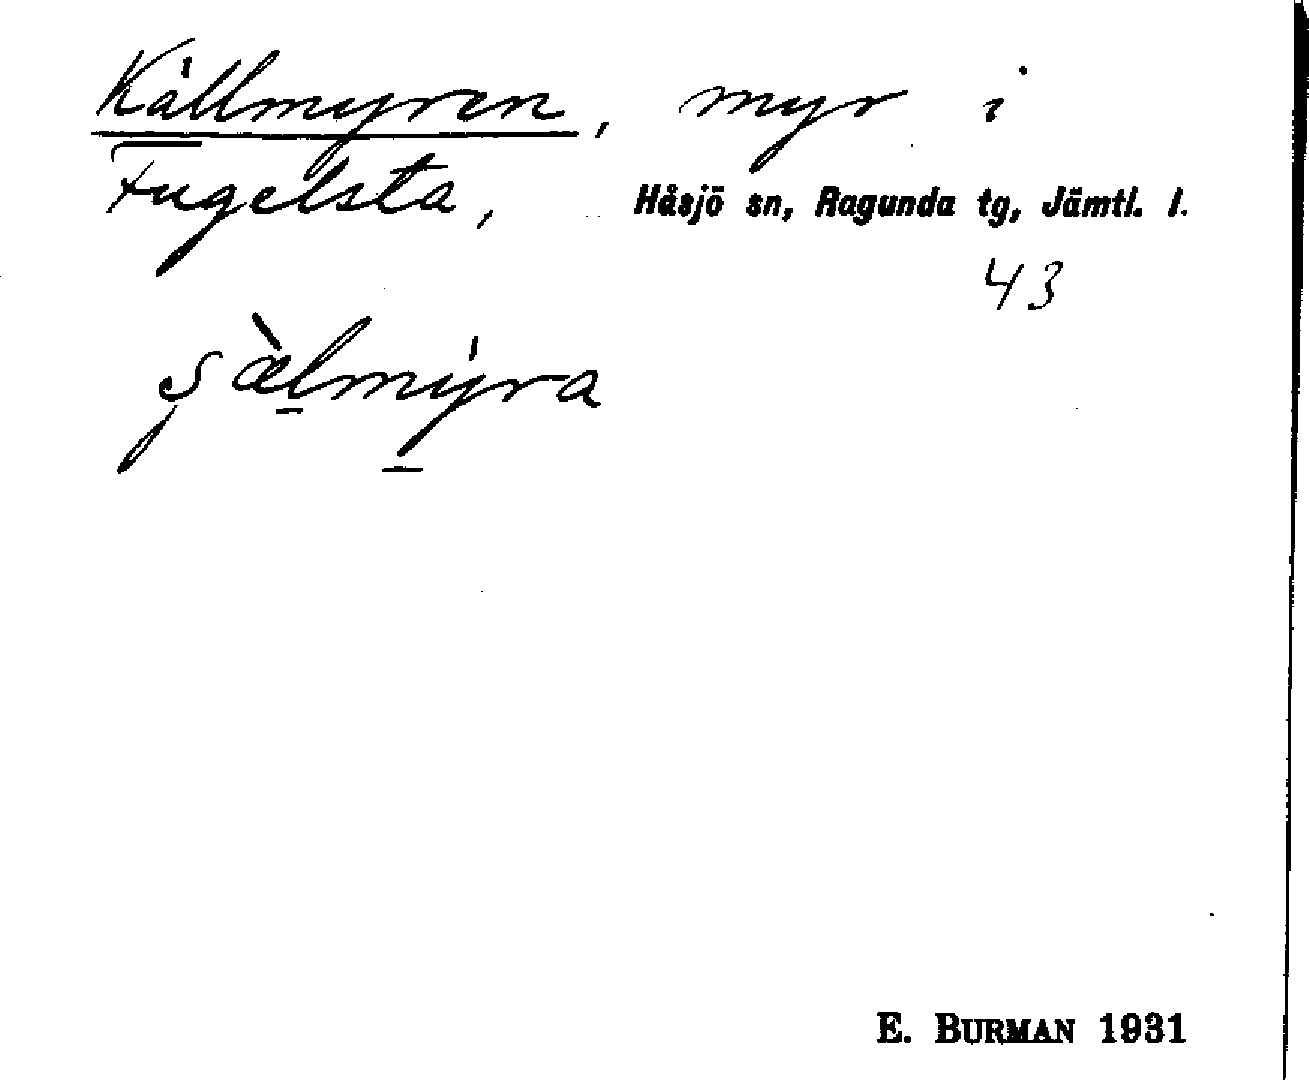 Källmyren, myr i
Fugelsta, Håsjö sn, Ragunda tg, Jämtl. l.
43
E. BURMAN 1931